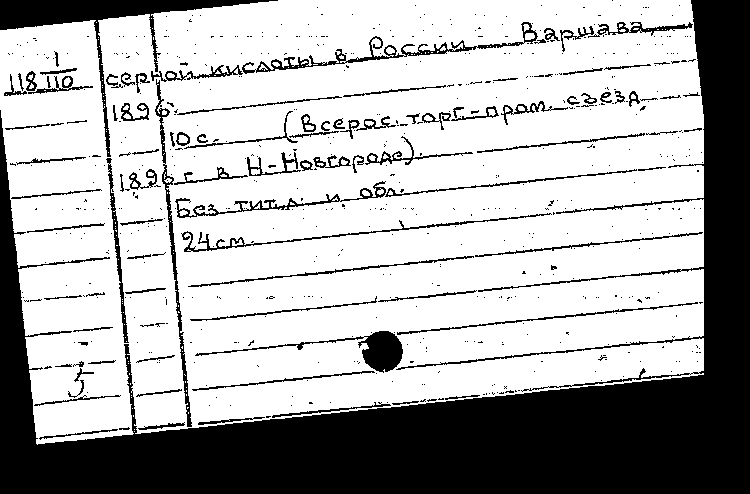 1
118 110 серной кислоты в России Варшава,
1896.
10 с. (Всерос. торг.-пром. съезд
1896 г. в Н-Новгороде).
Без тит. л. и обл.
24 см.
5